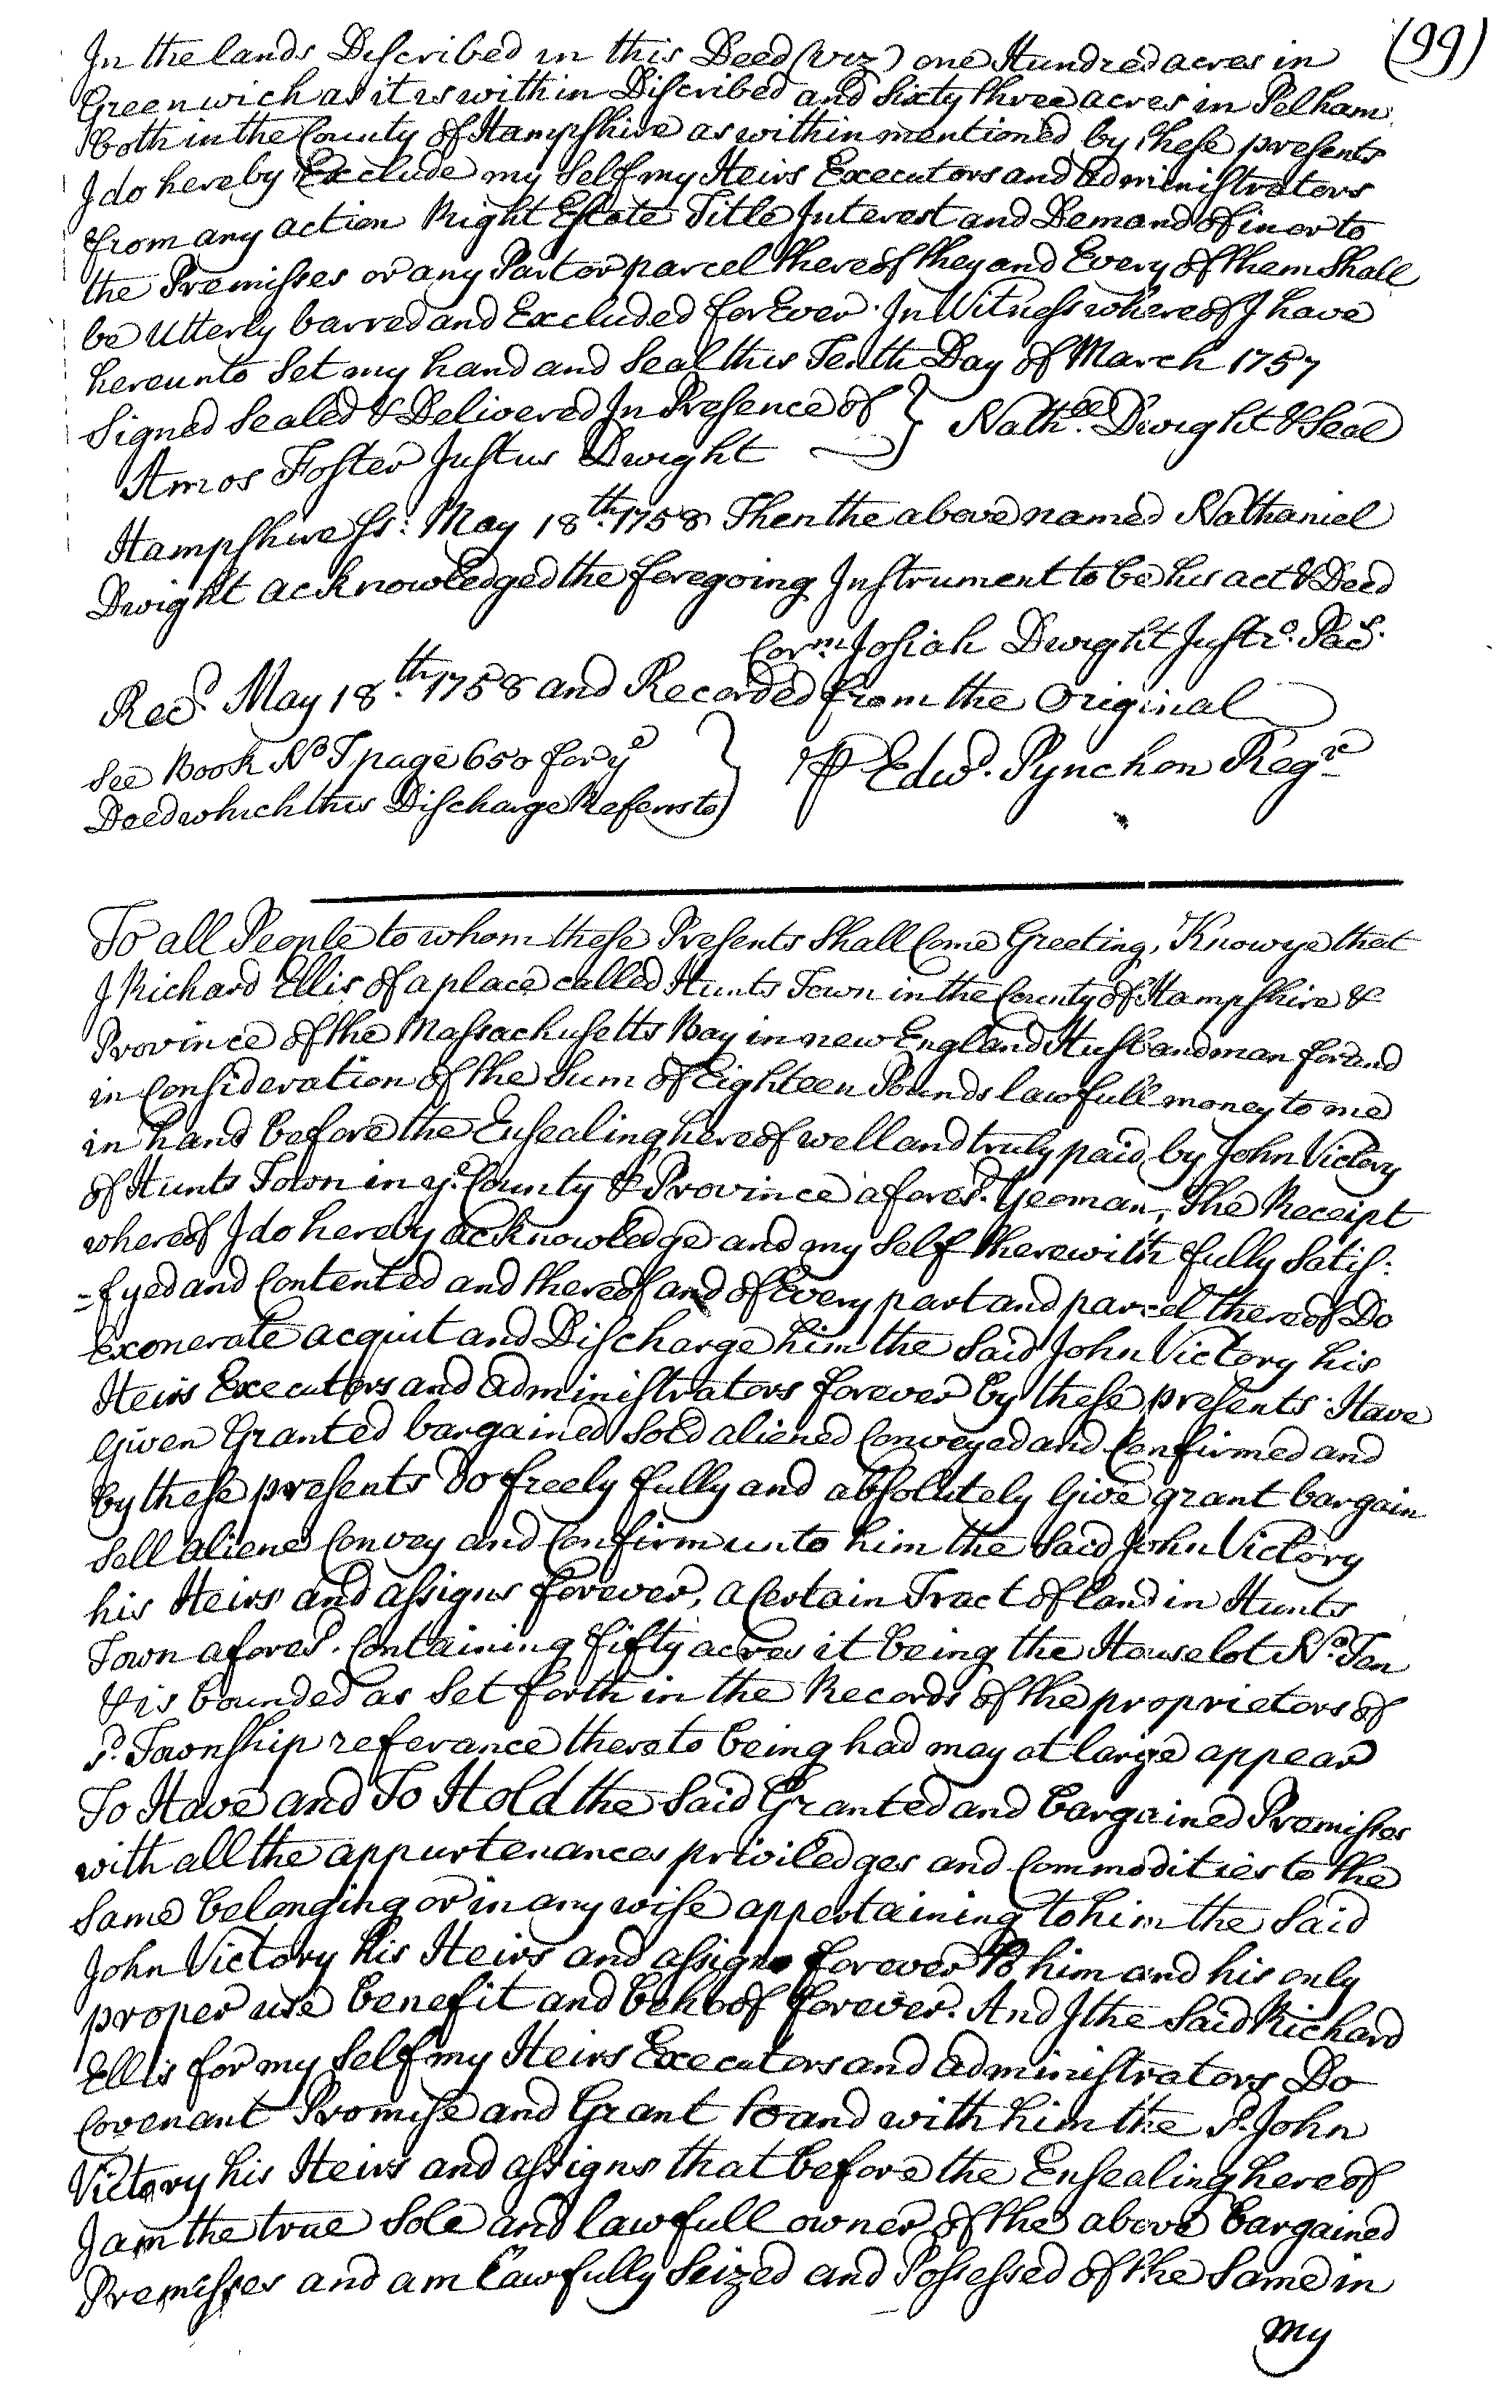 (99)
In the lands Discribed in this Deed (viz) one Hundred acres in
Greenwich as it is within Discribed and Sixty three acres in Pelham
Both in the County of Hampshire as within mentioned by these presents
I do hereby Exclude my Self my Heirs Executors and administrators
from any action Right Estate Title Interest and Demand of in or to
the Premisses or any Part or parcel thereof they and Every of them Shall
be Utterly barred and Excluded for Ever. In Witness whereof I have
hereunto Set my hand and Seal this Tenth Day of March 1757
Signed Sealed & Delivered In Presence of } Nathll. Dwight & Seal
Amos Foster Justus Dwight
Hampshire Ss: May 18th. 1758 Then the above named Nathaniel
Dwight acknowledged the foregoing Instrument to be his act & Deed
Corm. Josiah Dwight Justc. Pacs.
Recd. May 18th. 1758 and Recorded from the Original
See Book No T page 650 for ye } P Edwd. Pynchon Regr
Deed which this Discharge Refers to
To all People to whom these Presents Shall Come Greeting, Know ye that
I Richard Ellis of a place called Hunts Town in the County of Hampshire &
Province of the Massachusetts Bay in new England Husbandman for and
in Consideration of the Sum of Eighteen Pounds lawfull money to me
in hand before the Ensealing hereof well and truly paid by John Victory
of Hunts Town in ye. County & Province afoResd. Yeoman, the Receipt
whereof I do hereby acknowledge and my Self therewith fully Satis:
=fyed and Contented and thereof and of Every part and parcel thereof Do
exonerate acquit and Discharge him the Said John Victory his
Heirs Executors and administrators forever by these presents. Have
Given Granted bargained Sold aliened Conveyed and Confirmed and
by these presents do freely fully and absolutely Give grant bargain
Sell aliene Convey and Confirm unto him the Said John Victory
his Heirs and assigns forever, a Certain Tract of land in Hunts
Town aforesd. Containing fifty acres it being the Houselot No. Ten
& is bounded as Set forth in the Records of the proprietors of
sd. Township referance thereto being had may at large appear
To Have and To Hold the Said Granted and bargained Premisses
with all the appurtenances priviledges and Commodities to the
Same belonging or in any wise appertaining to him the Said
John Victory his Heirs and assigns forever to him and his only
proper use benefit and behoof forever. And I the Said Richard
Ellis for my Self my Heirs Executors and administrators Do
Covenant Promise and Grant to and with him the sd. John
Victory his Heirs and assigns that before the Ensealing hereof
I am the true Sole and lawfull owner of the above bargained
Premisses and am lawfully Seized and Possessed of the Same in
my